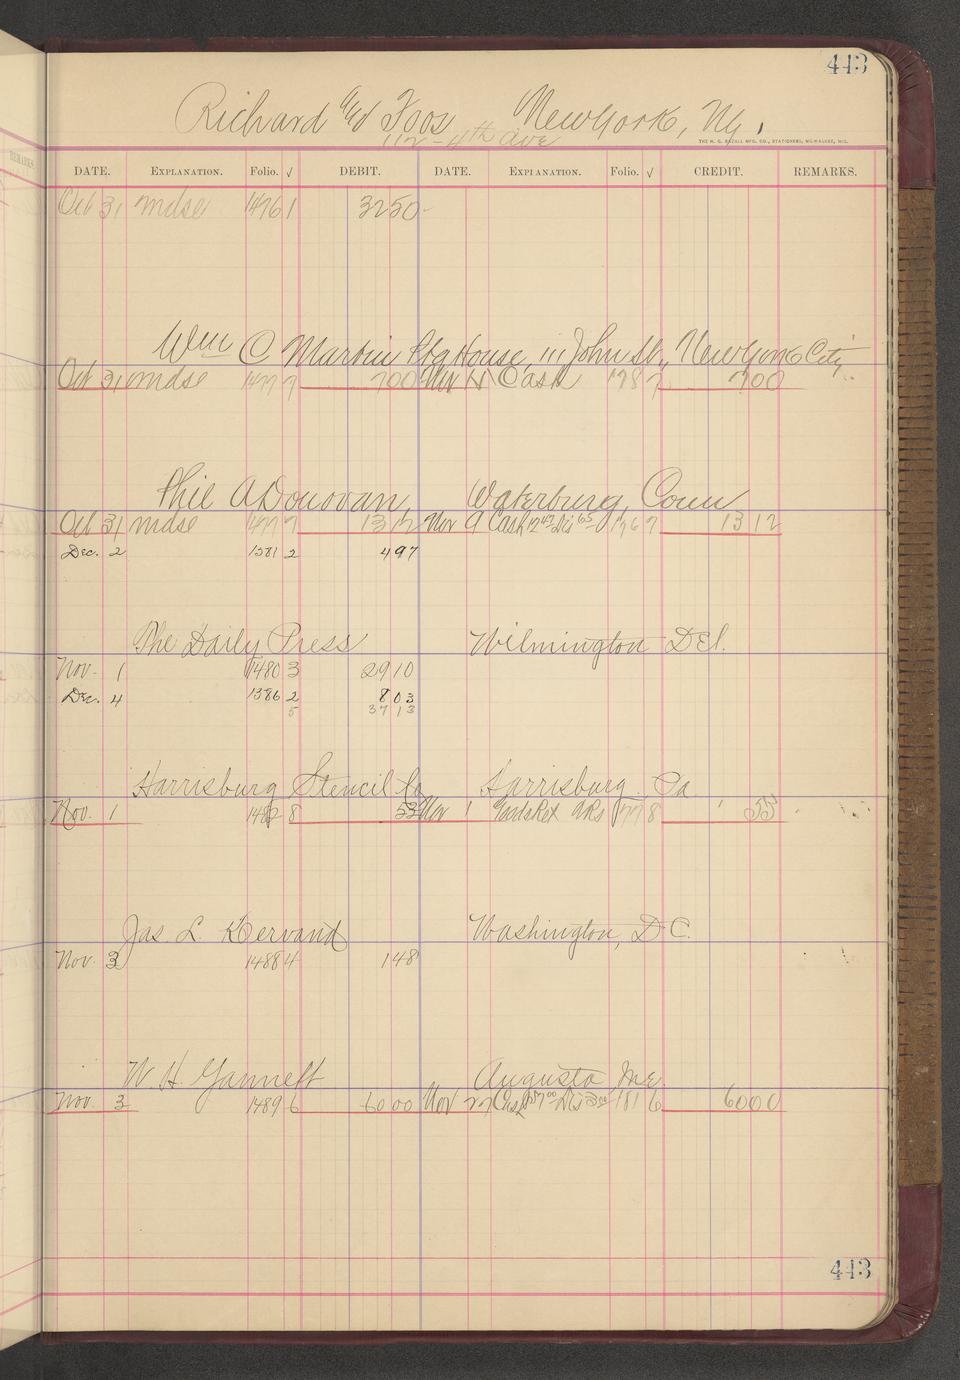 443
Richard Foos New York, Ny.
112 - 4th Ave
THE H. G. RAZALL MFG. CO., STATIONERS, MILWAUKEE, WIS.
REMARKS
DATE. EXPLANATION. Folio. √ DEBIT. DATE. EXPLANATION. Folio. √ CREDIT. REMARKS.
Oct 31 mdse 1476 1 3250
Wm C Martin Ptg House, 111 John St., New York City
Oct 31 mdse 1477 7 700 Nov Cash 178 7 700
Phil A Donovan, Waterbury, Conn
Oct 31 mdse 1477 7 1312 Nov 9 Cash 12 47 Dis 65 176 7 1312
Dec. 2 1381 2 497
The Daily Press Wilmington Del.
Nov. 1 1480 3 2910
Dec. 4 1386 2 803
5 3713
Harrisburg Stencil Co Harrisburg Pa
Nov. 1 1482 8 55 Nov 1 Goods Ret 177 8 55
Jas. L. Kervand Washington, D.C.
Nov. 3 1488 4 148
W. H. Gannett Augusta Me.
Nov. 3 1489 6 6000 Nov 27 Cash 57 00 Dis 3 00 181 6 6000
443